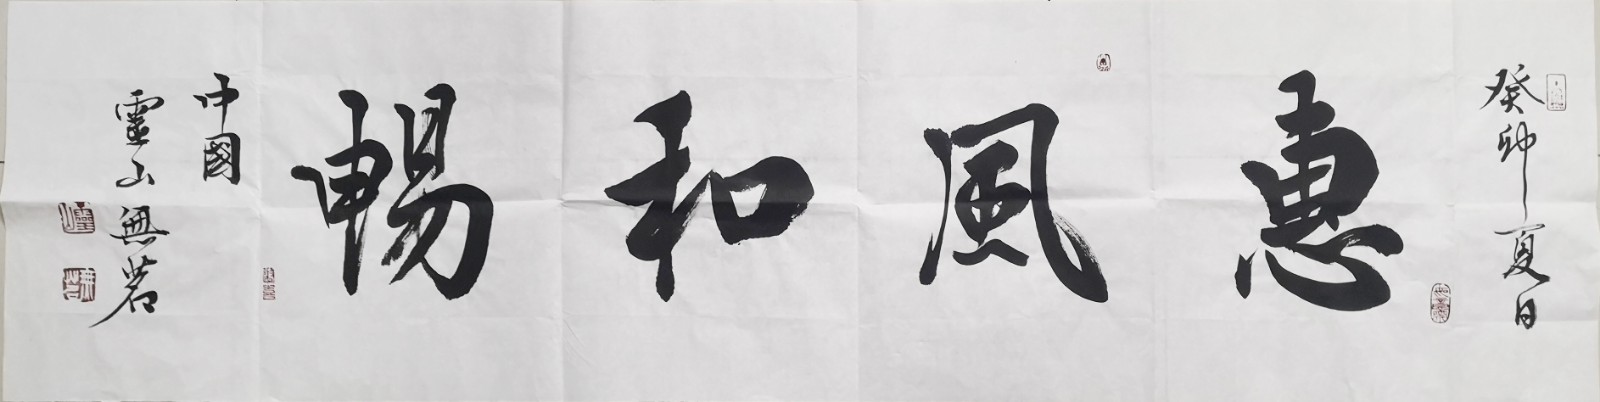 癸卯夏日
惠風和暢
中國
靈山無茗